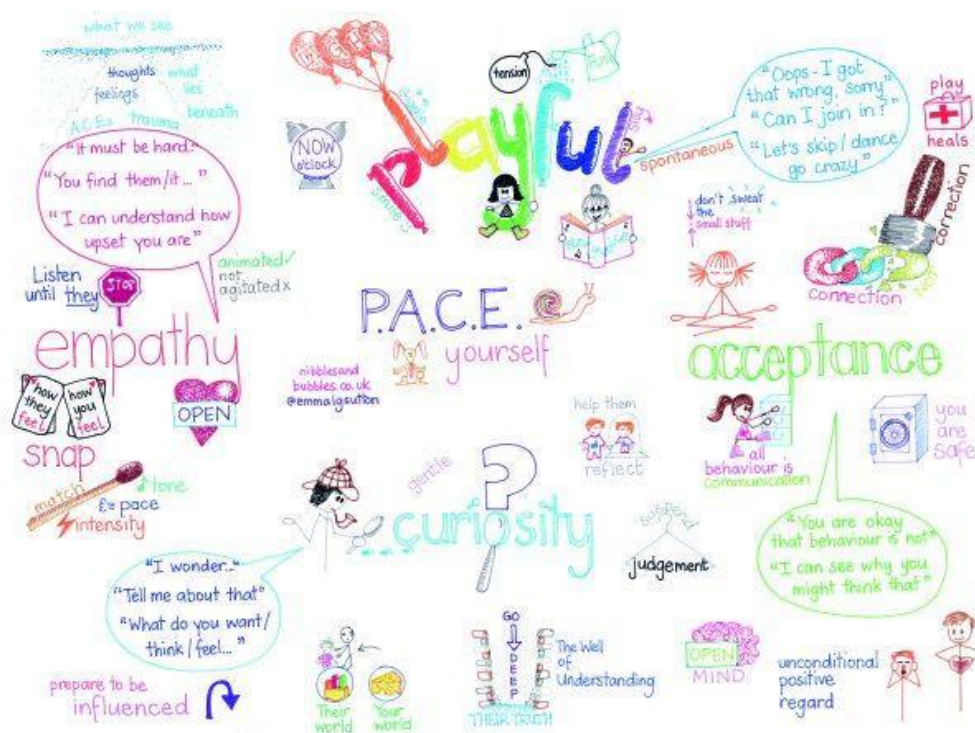 what we see
thoughts
feelings
what
lies
beneath
A.C.E.s trauma
"It must be hard."
"You find them/it..."
"I can understand how
upset you are"
Listen
until they
STOP
animated ✓
not
agitated x
empathy
how
they
feel
how
you
feel
snap
OPEN
match
tone
pace
intensity
NOW
o'clock
tension
playful
smile
spontaneous
"Oops - I got
that wrong, sorry"
"Can I join in?"
"Let's skip/dance
go crazy"
play
heals
don't sweat
the
small stuff
connection
correction
P.A.C.E.
yourself
nibblesand
bubbles.co.uk
@emmalgsutton
acceptance
help them
reflect
all
behaviour is
communication
you
are
safe
"You are okay
that behaviour is not"
"I can see why you
might think that"
gentle
?
...curiosity
suspend
judgement
"I wonder..."
"Tell me about that"
"What do you want/
think/feel..."
prepare to be
influenced
Their
world
Your
world
GO
DEEP
The Well
of
Understanding
THEIR TRUTH
OPEN
MIND
unconditional
positive
regard